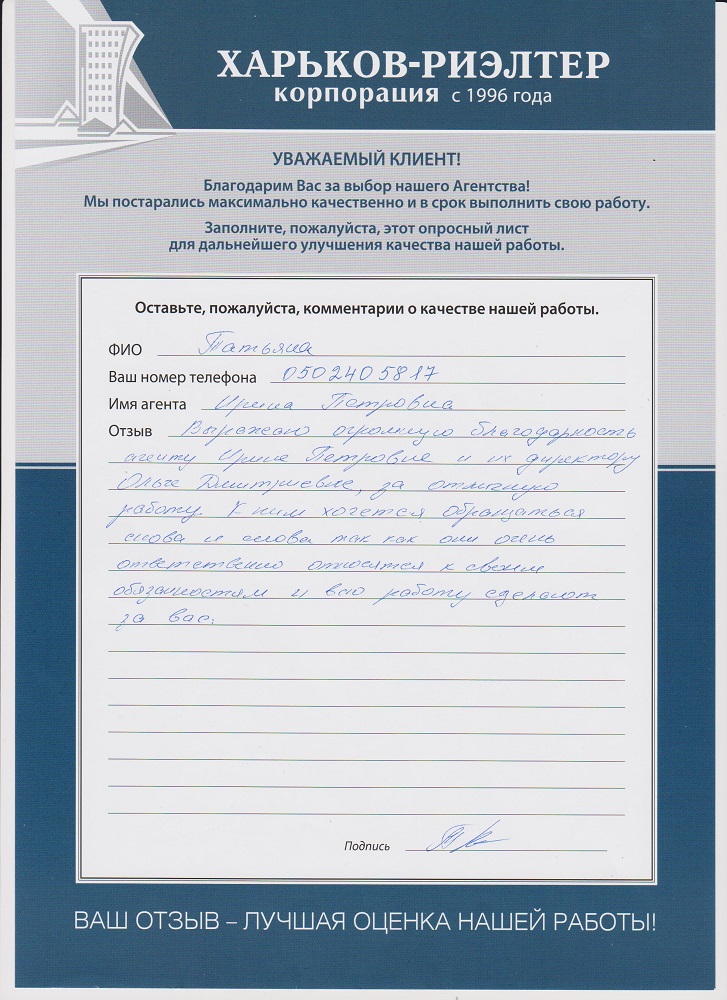 ХАРЬКОВ-РИЭЛТЕР
корпорация с 1996 года
УВАЖАЕМЫЙ КЛИЕНТ!
Благодарим Вас за выбор нашего Агентства!
Мы постарались максимально качественно и в срок выполнить свою работу.
Заполните, пожалуйста, этот опросный лист
для дальнейшего улучшения качества нашей работы.
Оставьте, пожалуйста, комментарии о качестве нашей работы.
ФИО Татьяна
Ваш номер телефона 0502405817
Имя агента Ирина Петровна
Отзыв Выражаю огромную благодарность
агенту Ирине Петровне и их директору
Ольге Дмитриевне, за отличную
работу. К ним хочется обращаться
снова и снова так как они очень
ответственно относятся к своим
обязанностям и всю работу сделают
за вас.
Подпись
ВАШ ОТЗЫВ – ЛУЧШАЯ ОЦЕНКА НАШЕЙ РАБОТЫ!